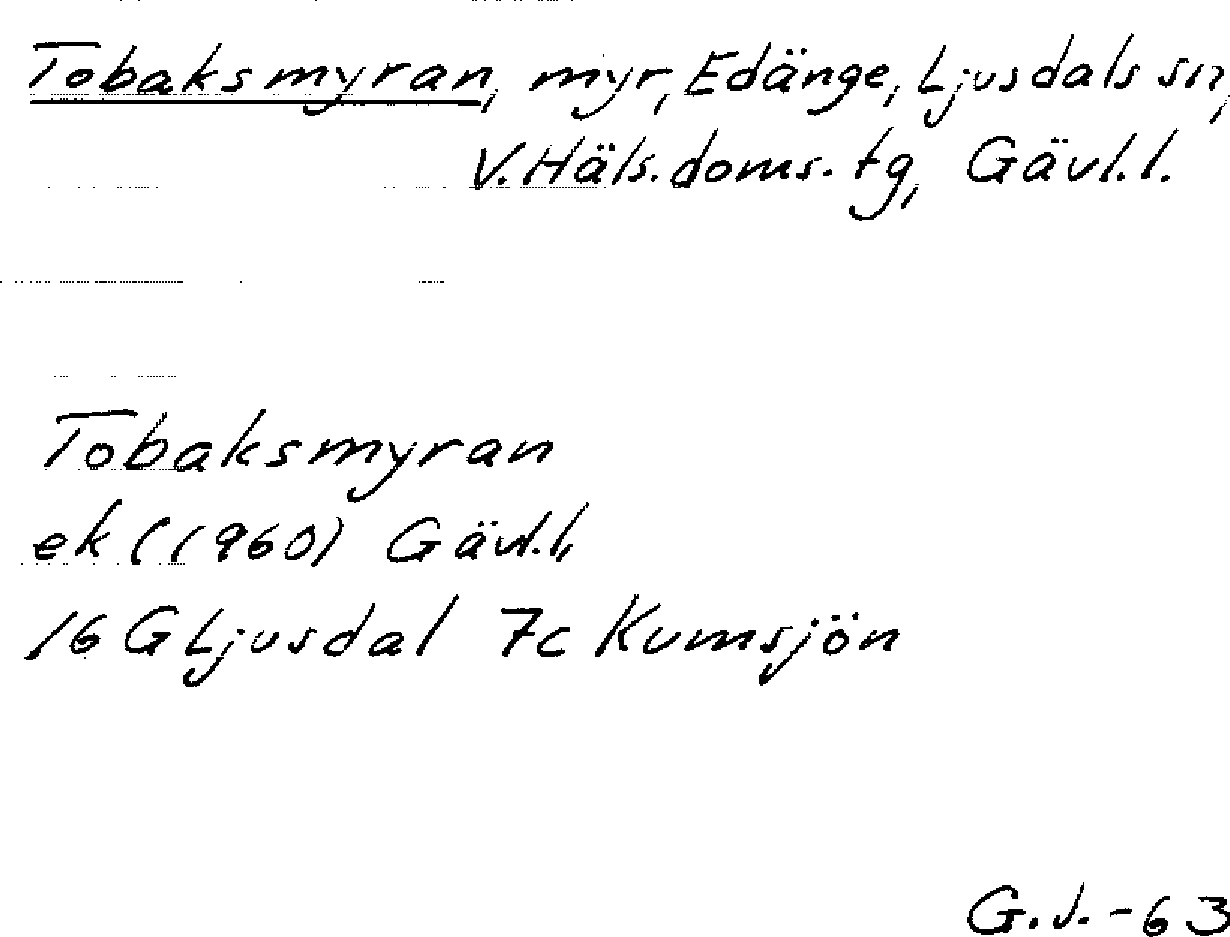 Tobaksmyran, myr, Edänge, Ljusdals sn,
V. Häls. doms. tg, Gävl. l.
Tobaksmyran
ek (1960) Gävl. l,
16 G Ljusdal 7c Kumsjön
G.J. - 63